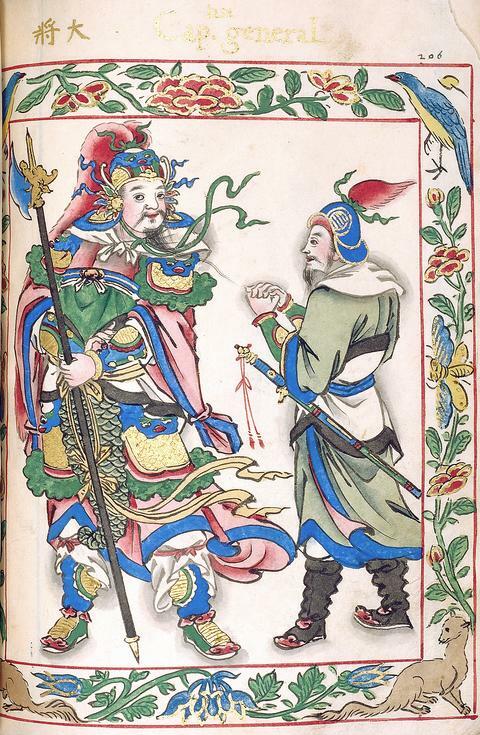 大將
Cap. general
206